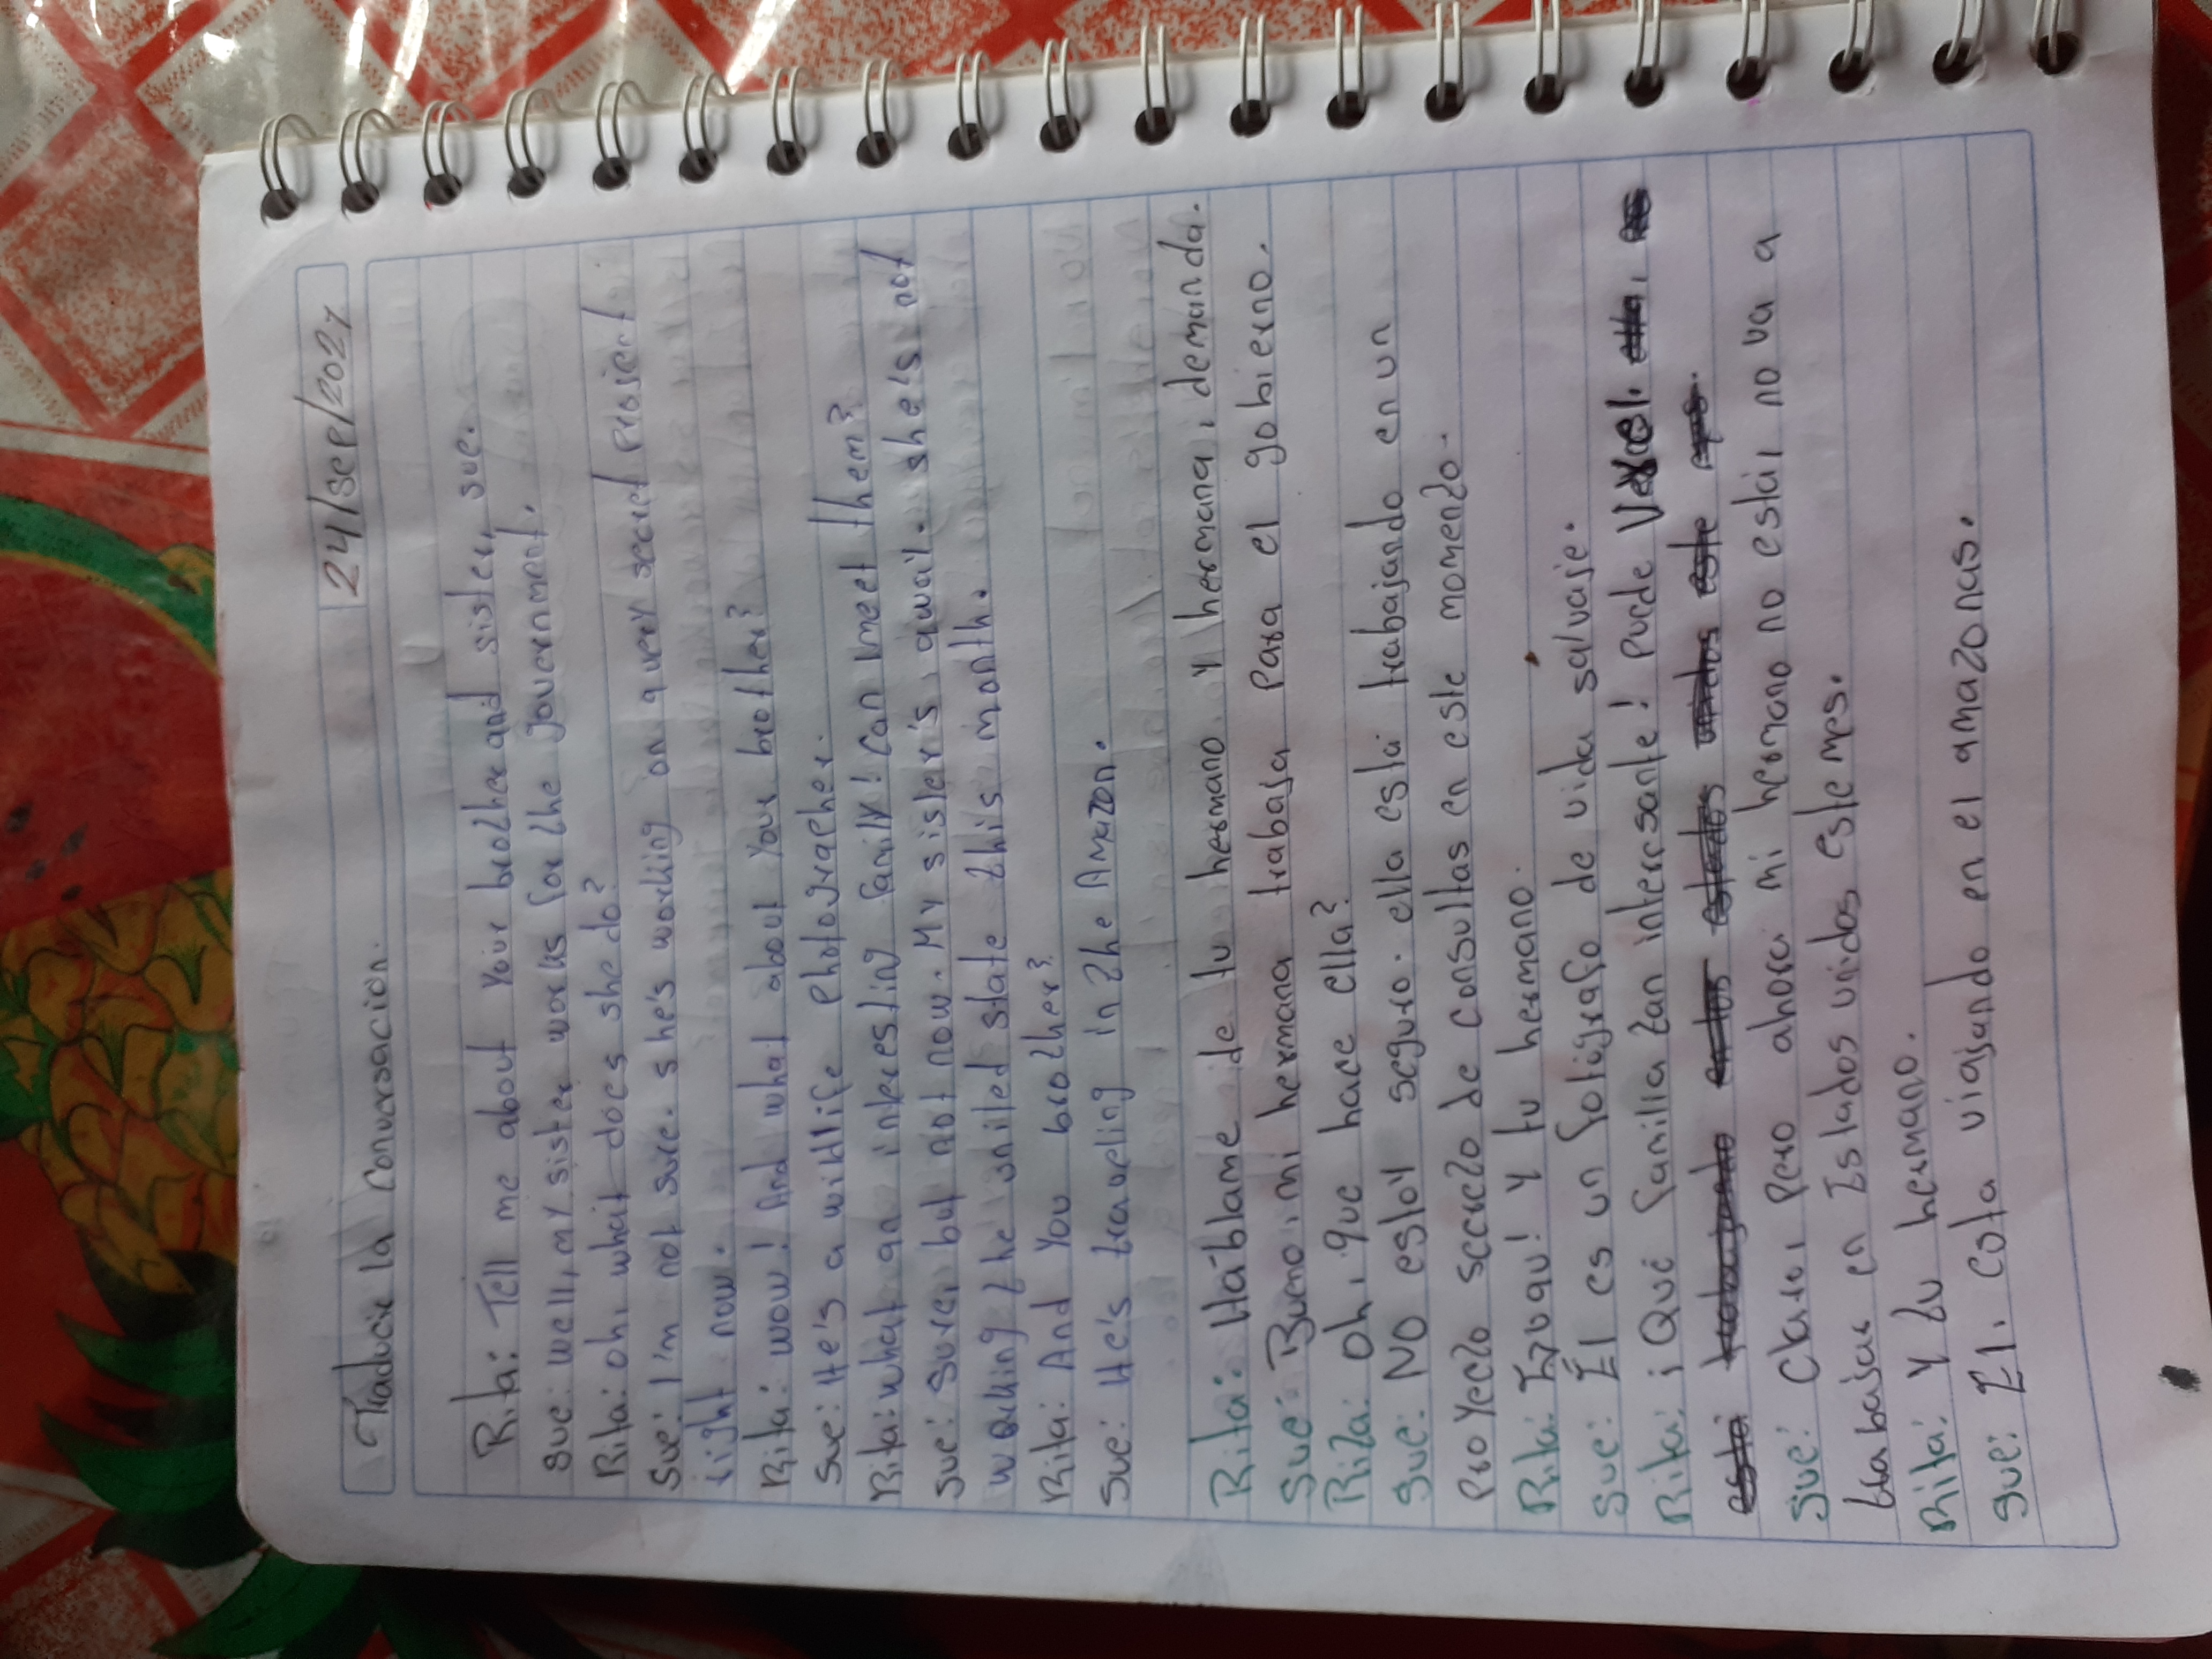 24/sep/2021
Traducir la conversacion.
Rita: Tell me about your brother and sister, sue.
Sue: well, my sister works for the government.
Rita: oh, what does she do?
Sue: I'm not sure. she's working on a very secret project
right now.
Rita: wow! And what about your brother?
Sue: He's a wildlife photographer.
Rita: what an interesting family! Can I meet them?
Sue: Sure, but not now. My sister's, away. she's not
working the united state this month.
Rita: And you brother?
Sue: He's traveling in the Amazon.
Rita: Háblame de tu hermano y hermana, demanda.
Sue: Bueno, mi hermana trabaja para el gobierno.
Rita: oh, que hace ella?
Sue: No estoy seguro. ella está trabajando en un
proyecto secreto de consultas en este momento.
Rita: ! y tu hermano.
Sue: El es un fotógrafo de vida salvaje.
Rita: ¡Qué familia tan interesante! puede
Sue: Claro, pero ahora mi hermano no está, no va a
trabajar en Estados unidos este mes.
Rita: y tu hermano.
Sue: El, viajando en el amazonas.